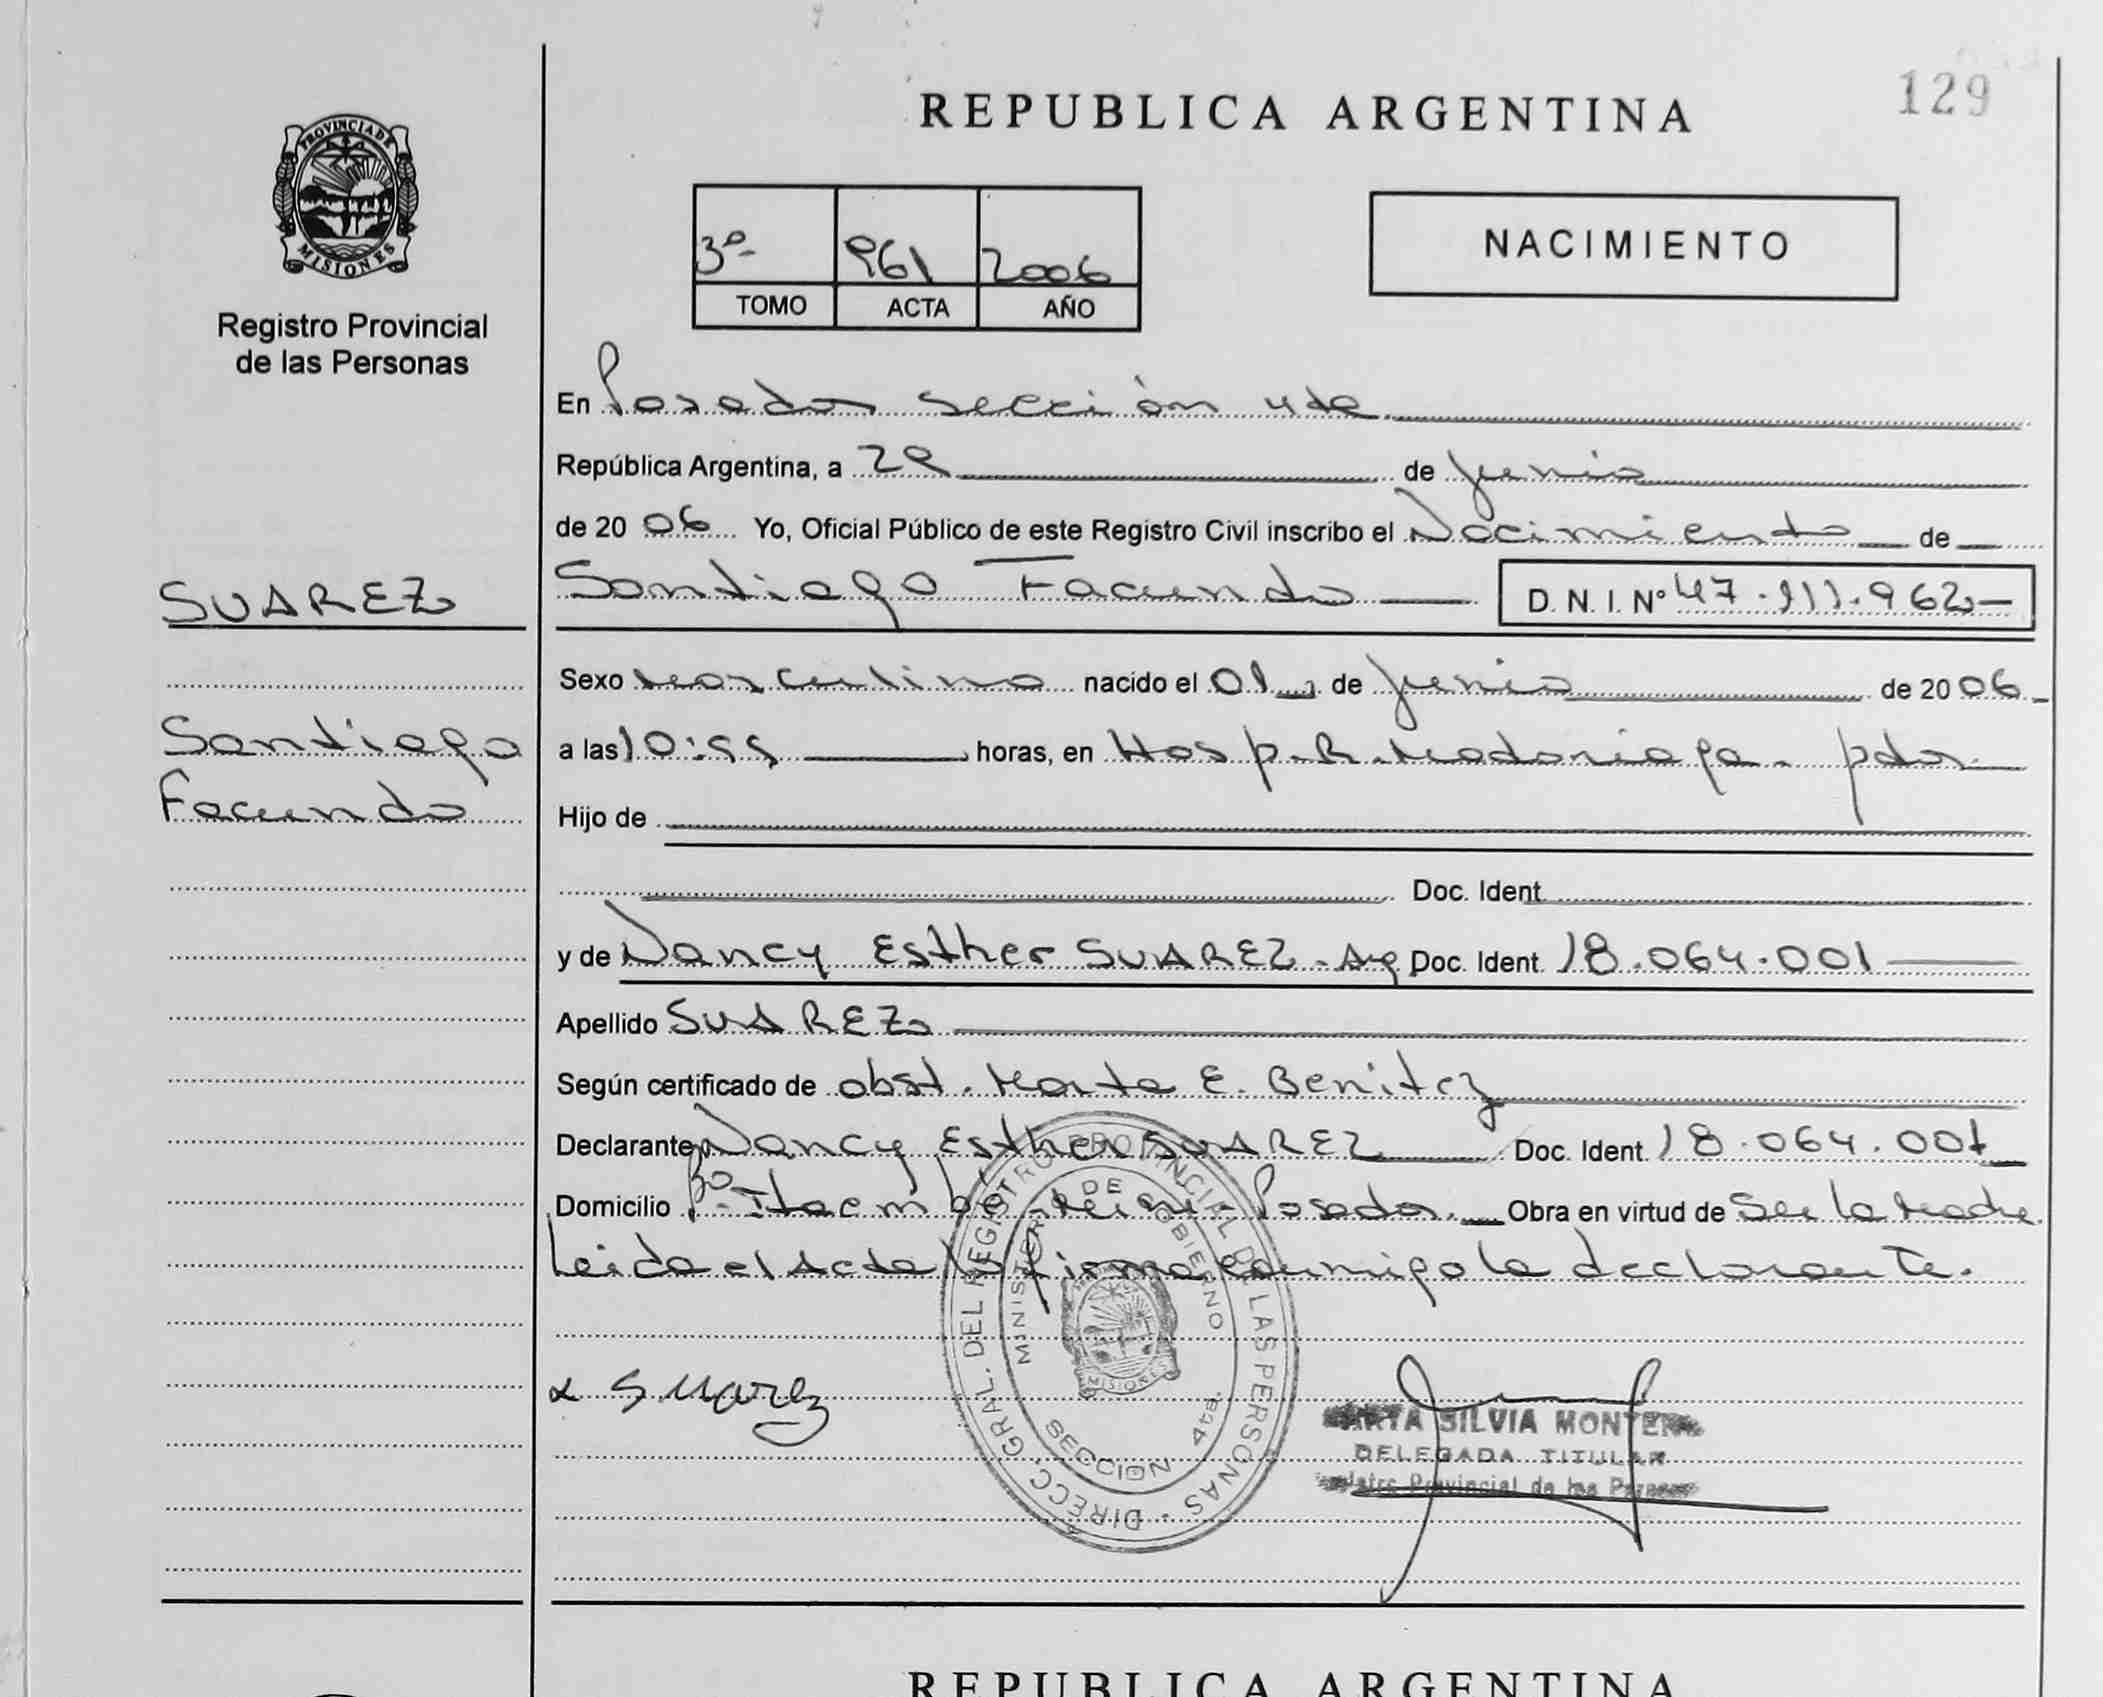 129
REPUBLICA ARGENTINA
PROVINCIA DE
MISIONES
Registro Provincial
de las Personas
3º 961 2006
TOMO ACTA AÑO
NACIMIENTO
En Posadas sección 4ta
República Argentina, a de Junio
de 20 06 Yo, Oficial Público de este Registro Civil inscribo el Nacimiento de
SUAREZ
Santiago Facundo D. N. I. Nº 47.111.962
Sexo Masculino nacido el 01 de Junio de 20 06
Santiago
Facundo
a las 10:55 horas, en Hosp. R. Madariaga. pdas.
Hijo de
Doc. Ident.
y de Nancy Esther SUAREZ - Ag Doc. Ident. 18.064.001
Apellido SUAREZ
Según certificado de obst. Marta E. Benitez
Declarante Nancy Esther SUAREZ Doc. Ident. 18.064.001
Domicilio Bº Itaembé Miní - Posadas. Obra en virtud de Ser la Madre.
Leida el Acta la firma conmigo la declarante.
DIRECC. GRAL. DEL REGISTRO PROVINCIAL DE LAS PERSONAS
MINISTERIO DE GOBIERNO
MISIONES
SECCION 4ta.
Suarez
SILVIA
DELEGADA TITULAR
Provincial de las
REPUBLICA ARGENTINA